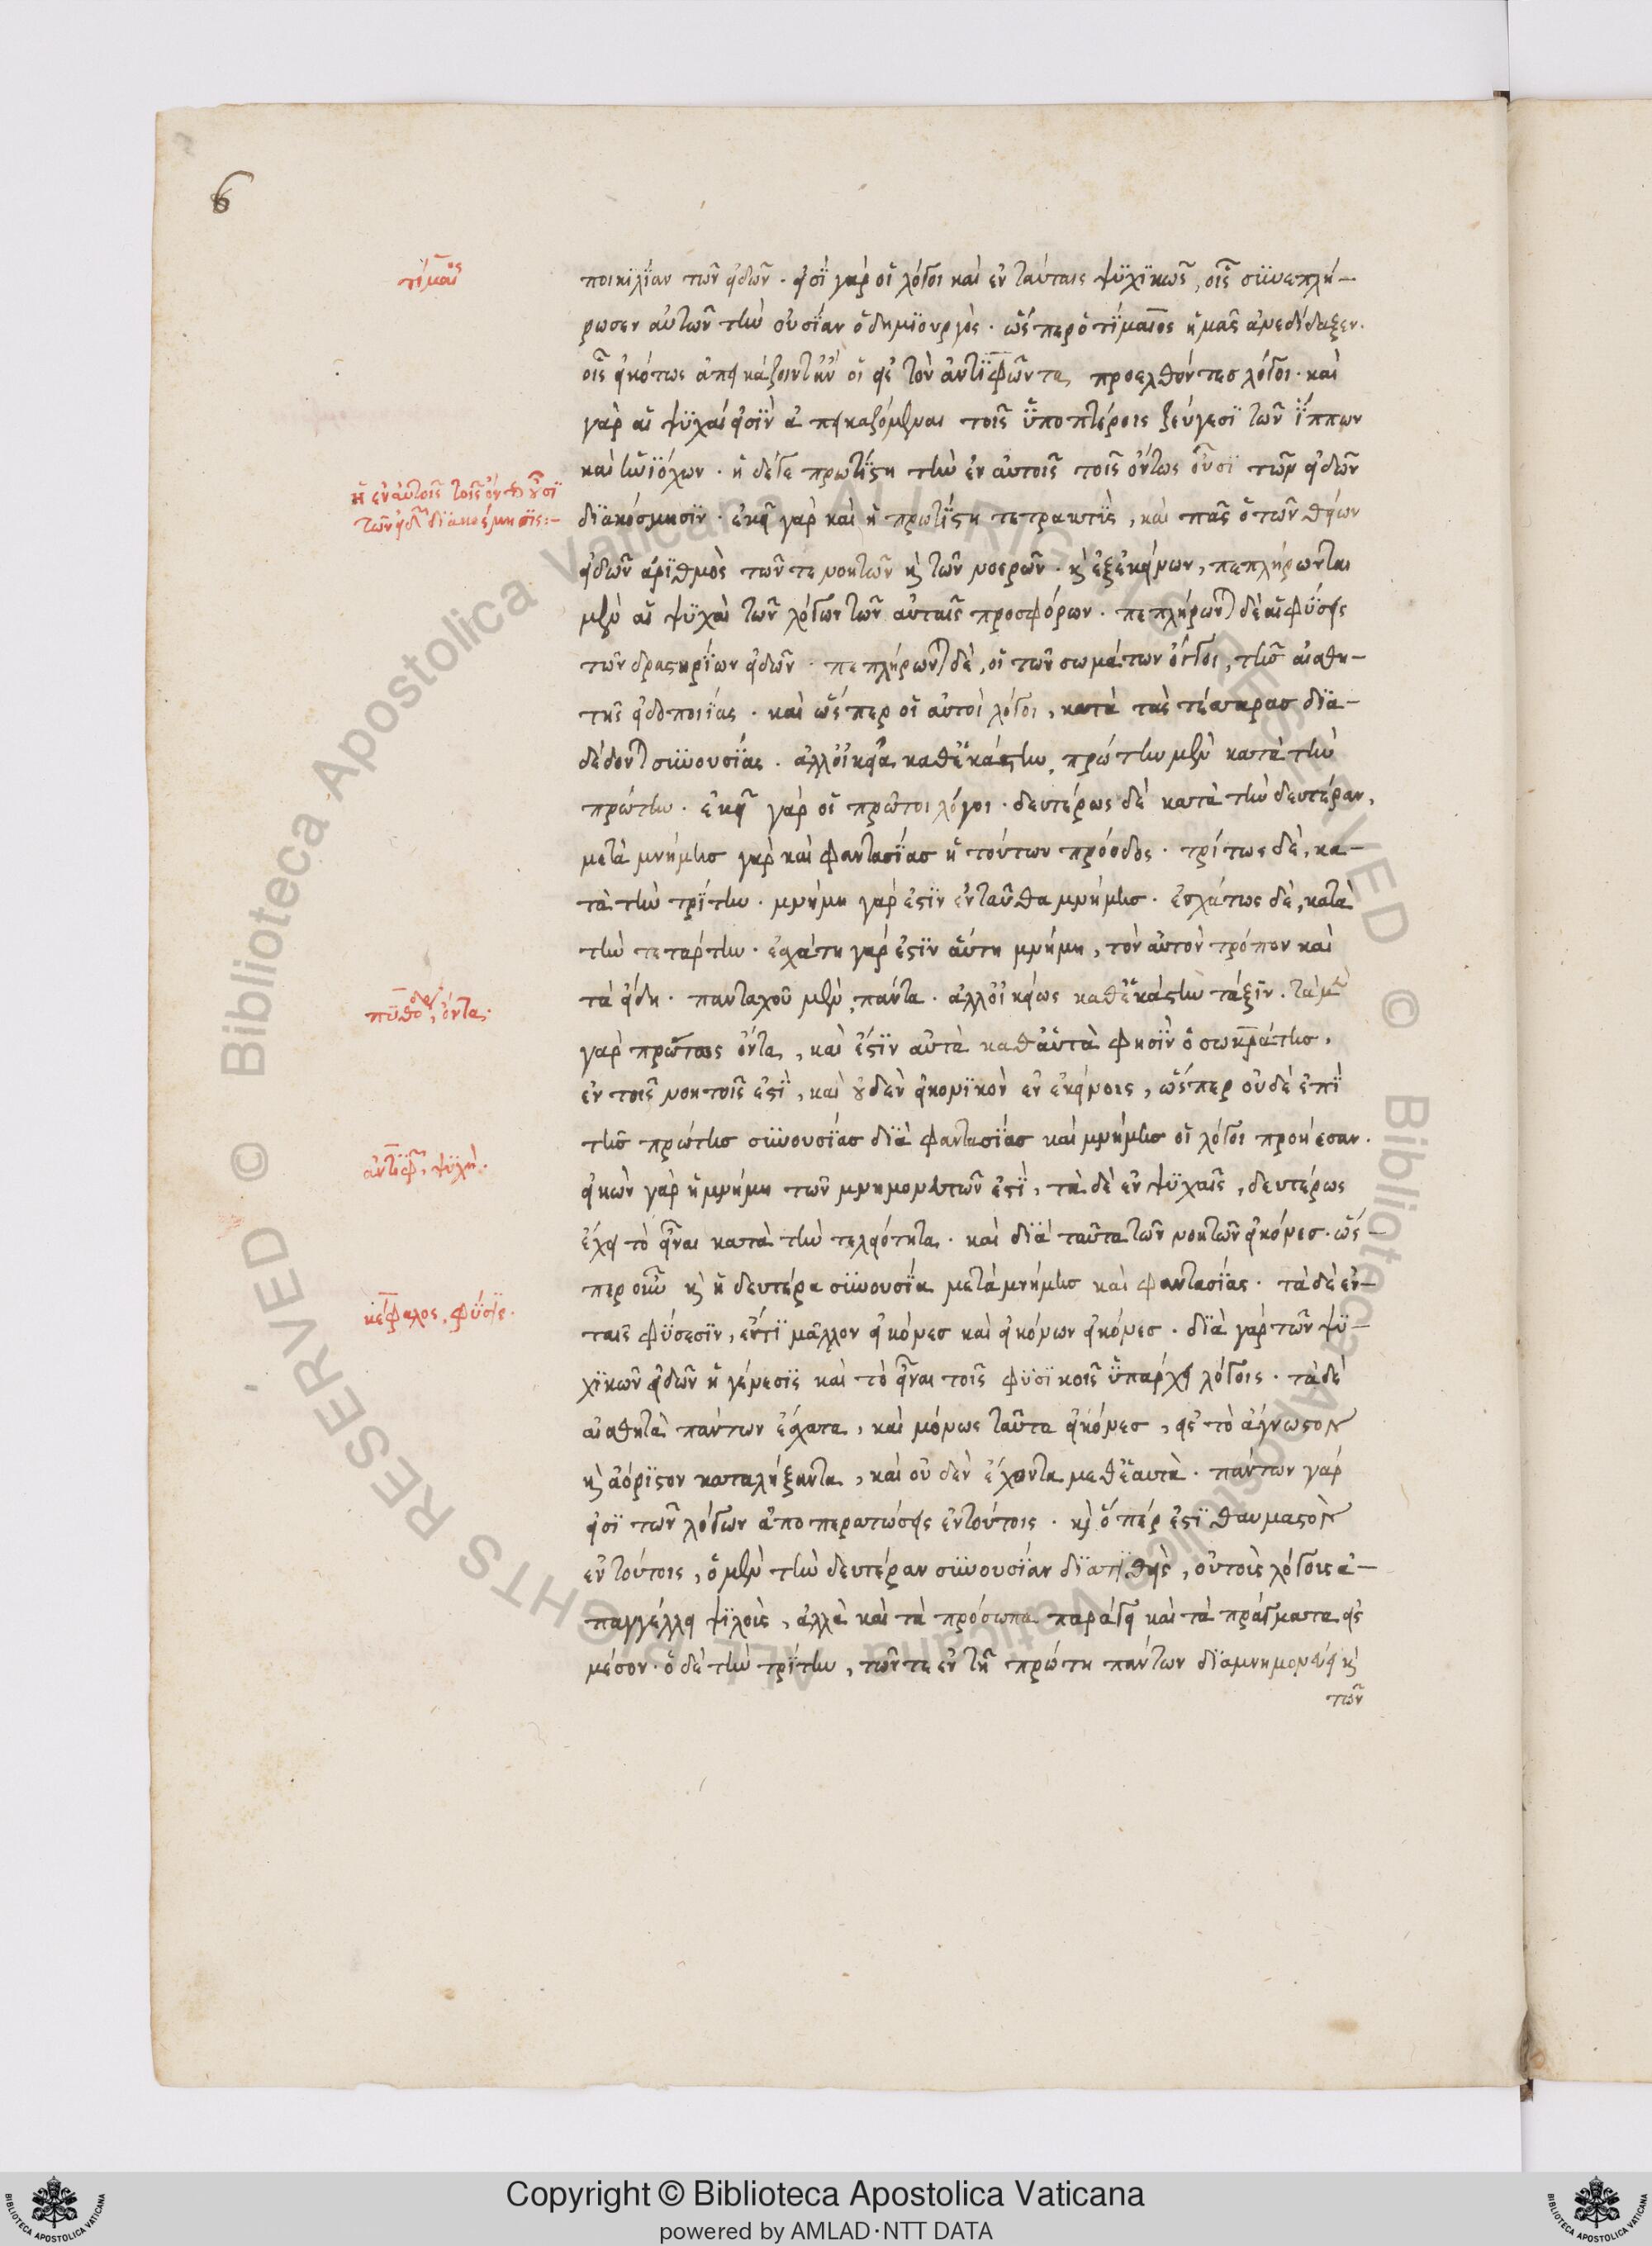 6
τίμαιος
ποικιλίαν τῶν εἰδῶν. εἰσὶ γὰρ οἱ λόγοι καὶ ἐν ταύταις ψυχικῶς, οἷς συνεπλή-
ρωσεν αὐτῶν τὴν οὐσίαν ὁ δημιουργὸς. ὥσπερ ὁ τίμαιος ἡμᾶς ἀνεδίδαξεν.
οἷς εἰκότως ἀπεικάζοιντ᾽ ἂν οἱ εἰς τὸν ἀντιφῶντα προελθόντες λόγοι. καὶ
γὰρ αἱ ψυχαί εἰσιν ἀπεικαζόμεναι τοῖς ὑποπτέροις ζεύγεσι τῶν ἵππων
καὶ ἡνιόχων. ἡ δέ γε πρωτίστη τὴν ἐν αὐτοῖς τοῖς ὄντως οὖσι τῶν εἰδῶν
ἡ ἐν αὐτοῖς τοῖς ὄντως οὖσι
τῶν εἰδῶν διακόσμησις:-
διακόσμησιν. ἐκεῖ γὰρ καὶ ἡ πρωτίστη τετρακτὺς, καὶ πᾶς ὁ τῶν θείων
εἰδῶν ἀριθμὸς τῶν τε νοητῶν καὶ τῶν νοερῶν. καὶ ἐξ ἐκείνων, πεπλήρωνται
μὲν αἱ ψυχαὶ τῶν λόγων τῶν αὐταῖς προσφόρων. πεπλήρωνται δὲ αἱ φύσεις
τῶν δραστηρίων εἰδῶν. πεπλήρωνται δὲ, οἱ τῶν σωμάτων ὄγκοι, τῆς αἰσθη-
τῆς εἰδοποιίας. καὶ ὥσπερ οἱ αὐτοὶ λόγοι, κατὰ τὰς τέσσαρας δια-
δέδονται συνουσίας. ἀλλ᾽ οἰκεῖα καθ᾽ ἑκάστην, πρώτην μὲν κατὰ τὴν
πρώτην. ἐκεῖ γὰρ οἱ πρῶτοι λόγοι. δευτέρως δὲ κατὰ τὴν δευτέραν,
μετὰ μνήμης γὰρ καὶ φαντασίας ἡ τούτων πρόοδος. τρίτως δὲ, κα-
τὰ τὴν τρίτην. μνήμη γάρ ἐστιν ἐνταῦθα μνήμης. ἐσχάτως δὲ, κατὰ
τὴν τετάρτην. ἐσχάτη γάρ ἐστιν αὕτη μνήμη, τὸν αὐτὸν τρόπον καὶ
τὰ εἴδη. πανταχοῦ μὲν, πάντα. ἀλλ᾽ οἰκείως καθ᾽ ἑκάστην τάξιν. τὰ μὲν
πυθόδω, ὄντα.
γὰρ πρώτως ὄντα, καὶ ἔστιν αὐτὰ καθ᾽ αὑτὰ φησὶν ὁ σωκράτης,
ἐν τοῖς νοητοῖς ἐστὶ, καὶ οὐδὲν εἰκονικὸν ἐν ἐκείνοις, ὥσπερ οὐδὲ ἐπὶ
τῆς πρώτης συνουσίας διὰ φαντασίας καὶ μνήμης οἱ λόγοι προῄεσαν.
ἀντιφῶν, ψυχή.
εἰκὼν γὰρ ἡ μνήμη τῶν μνημονευτῶν ἐστὶ, τὰ δὲ ἐν ψυχαῖς, δευτέρως
ἔχει τὸ εἶναι κατὰ τὴν τελειότητα. καὶ διὰ ταῦτα τῶν νοητῶν εἰκόνες. ὥσ-
περ οὖν καὶ ἡ δευτέρα συνουσία μετὰ μνήμης καὶ φαντασίας. τὰ δὲ ἐν
κέφαλος, φύσις.
ταῖς φύσεσιν, ἔτι μᾶλλον εἰκόνες καὶ εἰκόνων εἰκόνες. διὰ γὰρ τῶν ψυ-
χικῶν εἰδῶν ἡ γένεσις καὶ τὸ εἶναι τοῖς φυσικοῖς ὑπάρχει λόγοις. τὰ δὲ
αἰσθητὰ πάντων ἔσχατα, καὶ μόνως ταῦτα εἰκόνες, εἰς τὸ ἄγνωστον
καὶ ἀόριστον καταλήξαντα, καὶ οὐδὲν ἔχοντα μεθ᾽ ἑαυτὰ. πάντων γάρ
εἰσι τῶν λόγων ἀποπερατώσεις ἐν τούτοις. καὶ ὅπέρ ἐστι θαυμαστὸν
ἐν τούτοις, ὁ μὲν τὴν δευτέραν συνουσίαν διατιθεὶς, οὐ τοὺς λόγους ἀ-
παγγέλλει ψιλοὺς, ἀλλὰ καὶ τὰ πρόσωπα παράγει καὶ τὰ πράγματα εἰς
μέσον. ὁ δὲ τὴν τρίτην, τῶν τε ἐν τῇ πρώτῃ πάντων διαμνημονεύει καὶ
τῶν
Copyright © Biblioteca Apostolica Vaticana
powered by AMLAD·NTT DATA